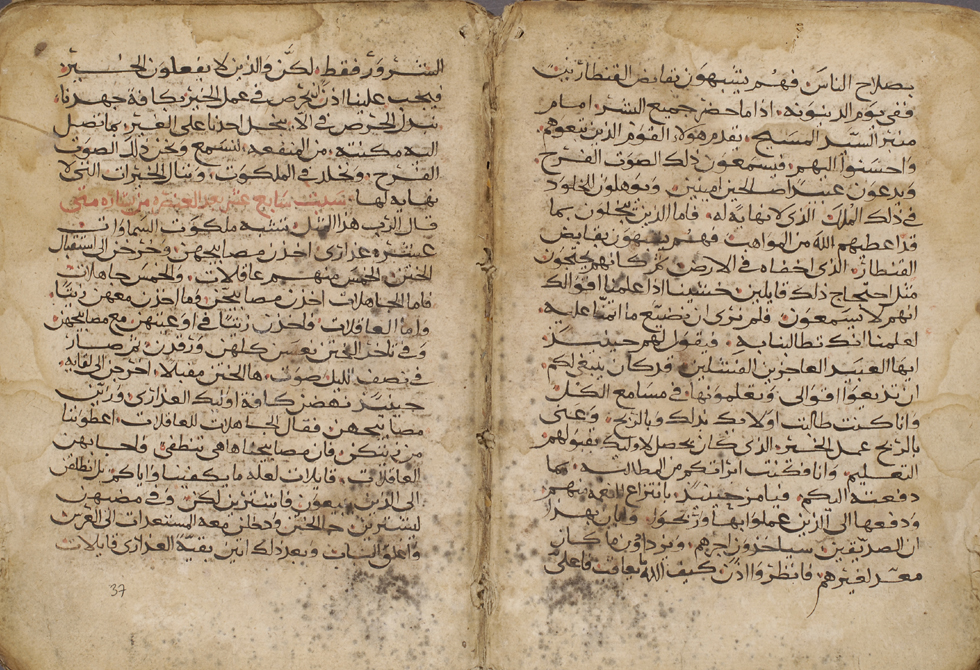 بصلاح الناس فهم يشبهون بقابض القنطارين
ففي يوم الدينونه اذا ما حضر جميع البشر امام
منبر السيد المسيح يتقدم هولا القوم الذين نفعوهم
واحسنوا اليهم فيسمعون ذلك الصوت الفرح
ويدعون عبيدا صالحين امينين ويوهلون للخلود
في ذلك الملك الذي لا نهاية له فاما الذين يبخلون بما
قد اعطيهم الله من المواهب فهم يشبهون بقابض
القنطار الذي اخفاه في الارض كانهم يحتجون
مثل احتجاج ذلك قايلين حسبنا اذا علمنا اقوالك
انهم لا يسمعون فلم نرى ان نضيع ما
اعلمنا انك تطالبنا به فيقول لهم حينيذ
ايها العبيد العاجزين الفشلين قد كان ينبغي لكم
ان تذيعوا اقوالي وتعلمونها في مسامع الكل
وانا كنت طالبت اولايك بذلك وبالربح وعنى
بالربح عمل الخير الذي كان يحصل لاوليك بقبولهم
التعليم وانا فكنت ابرأتكم من المطالبه بما
دفعته اليكم فيامر حينيذ بانتزاع النعمه منهم
ودفعها الى الذين عملوا بها وربحوا وبان بهذا
ان الصديقين سياخذون اجرهم ويزدادون ما كان
معد لغيرهم فانظروا اذن كيف الله يعاقب فاعلي
الشرور فقط لكن والذين لا يفعلون الخير
فيجب علينا اذن نحرص في عمل الخير بكافة جهدنا
نبذل الحرص في الا يبخل احدنا على الغير بما تصل
اليه مكنته من المنفعه لنسمع نحن ذلك الصوت
الفرح ونخلد في الملكوت وننال الخيرات التي لا
نهاية لها سبت سابع عشر بعد العنصره من بشارة متى
قال الرب هذا المثل تشبه ملكوت السماوات
عشره عذارى اخذن مصابيحهن وخرجن لاستقبال
الختن الخمس منهم عاقلات والخمس جاهلات
فاما الجاهلات اخذن مصابيحهن وما اخذن معهن زيتا
واما العاقلات فاخذن زيتا في اوعيتهن مع مصابيحهن
وفي تاخر الختن نعسن كلهن ورقدن ثم صار
في نصف الليل صوت ها الختن مقبلا اخرجن الى لقايه
حينيذ نهضن كافة اوليك العذارى وزين
مصابيحهن فقال الجاهلات للعاقلات اعطونا
من زيتكن فان مصابيحنا هاهي تنطفي فاجابهن
العاقلات قايلات لعله ما يكفينا واياكم بل انطلقن
الى الذين يبيعون فابتاعن لكن وفي مضيهن
ليشترين جا الختن ودخلن معه المستعدات الى العرس
واغلق الباب وبعد ذلك اتين بقية العذارى قايلات
37